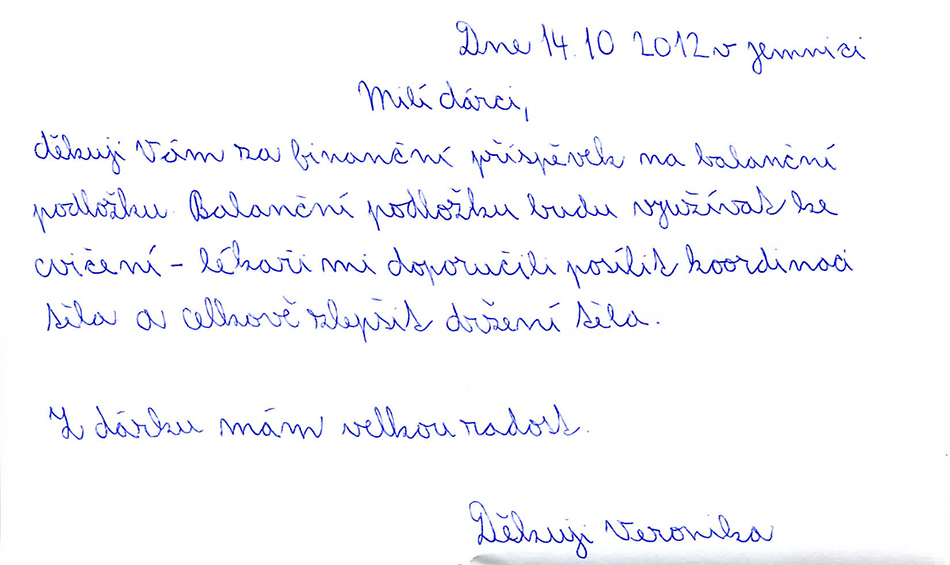 Dne 14.10 2012 v jemnici
Milí dárci,
děkuji Vám za finanční příspěvek na balanční
podložku. Balanční podložku budu využívat ke
cvičení – lékaři mi doporučili posílit koordinaci
těla a celkově zlepšit držení těla.
Z dárku mám velkou radost.
Děkuji Veronika